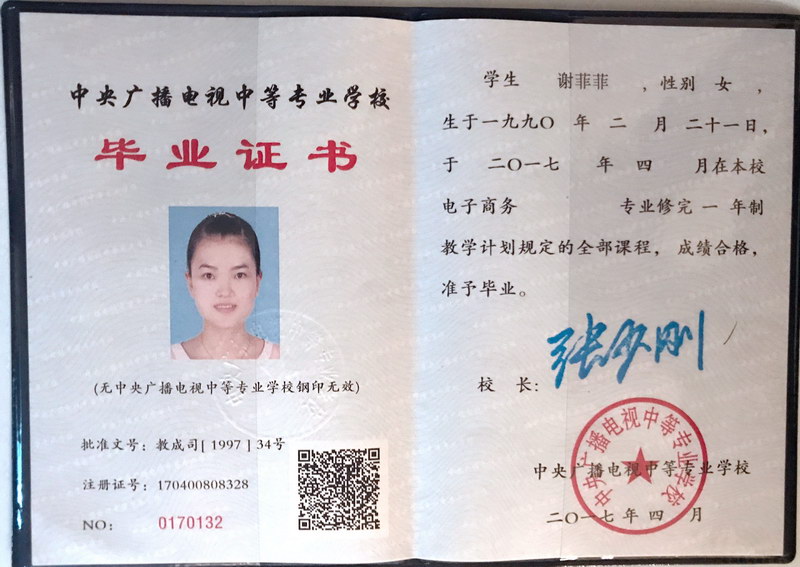 中央广播电视中等专业学校
毕业证书
(无中央广播电视中等专业学校钢印无效)
批准文号：教成司[1997]34号
注册证号：170400808328
NO： 0170132
学生 谢菲菲 ，性别 女 ，
生于一九九〇 年 二 月 二十一日，
于 二〇一七 年 四 月在本校
电子商务 专业修完 一 年制
教学计划规定的全部课程， 成绩合格，
准予毕业。
校 长：
中央广播电视中等专业学校
中央广播电视中等专业学校
二〇一七 年 四 月